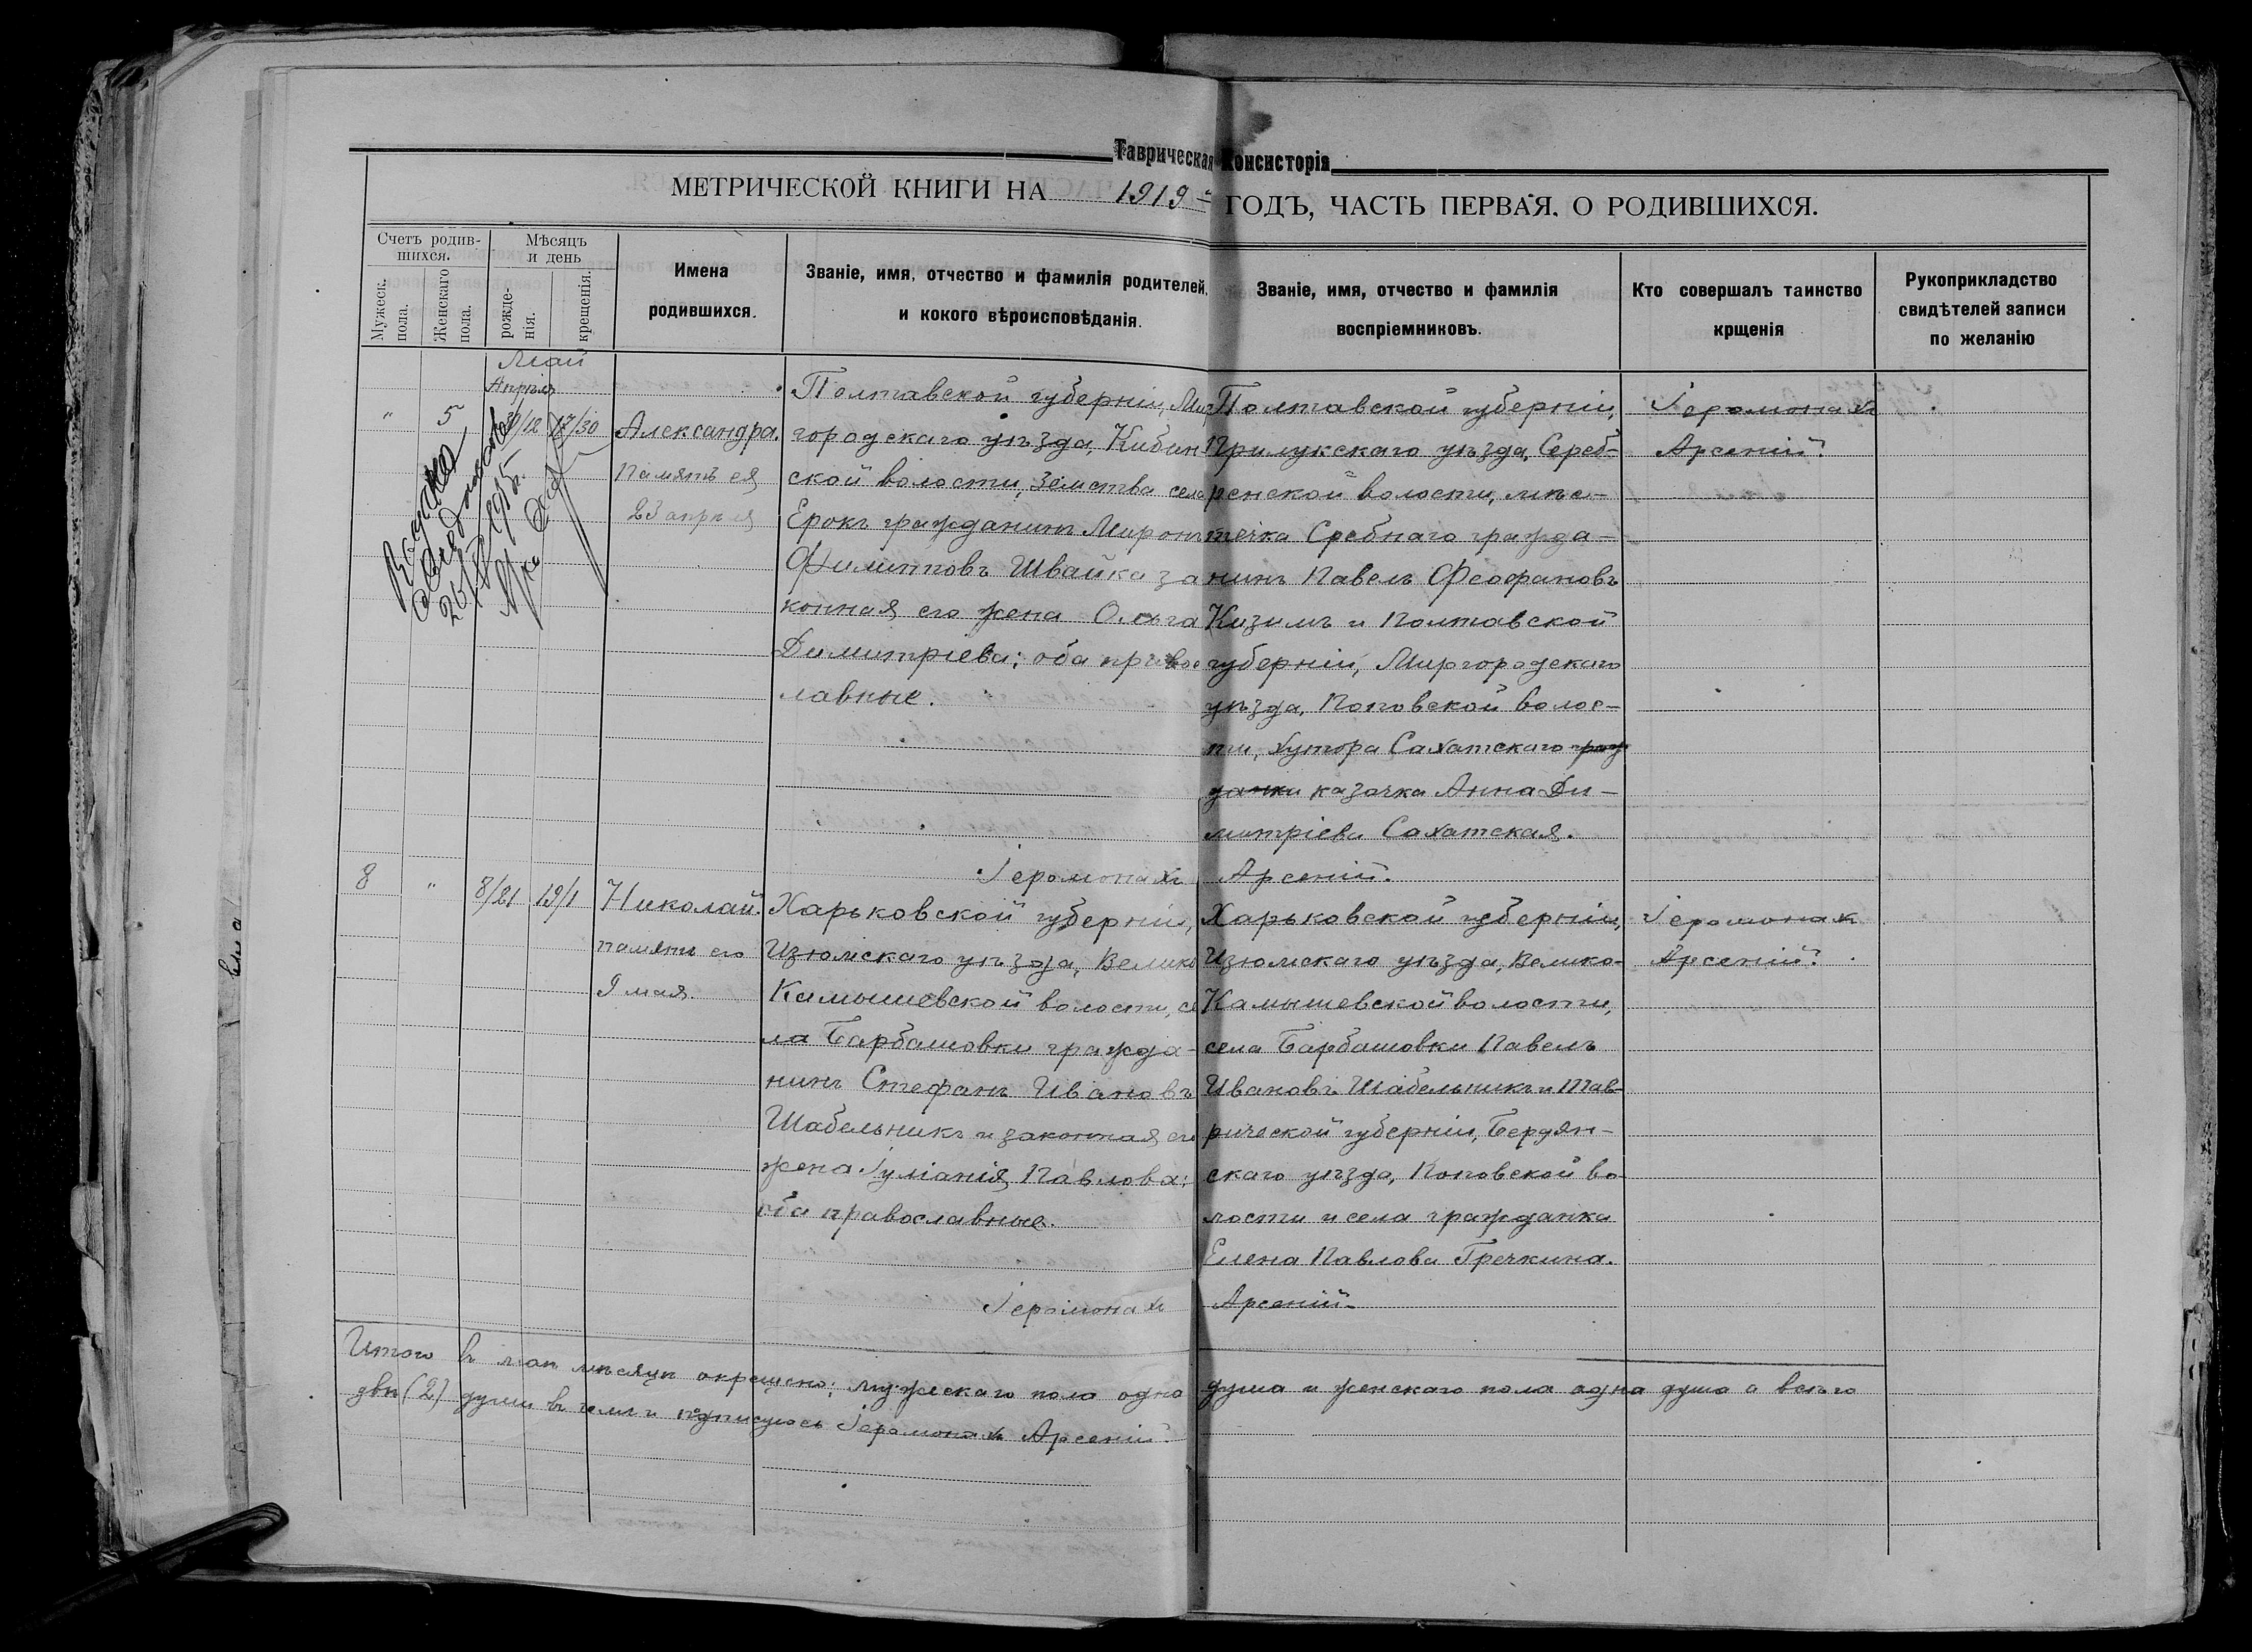 Таврическая Консисторія
МЕТРИЧЕСКОЙ КНИГИ НА 1919 г ГОДЪ, ЧАСТЬ ПЕРВАЯ. О РОДИВШИХСЯ.
Счетъ родив-
шихся.
Мужеск.
пола.
Женскаго
пола.
Мѣсяцъ
и день
рожде-
нія.
крещенія.
Имена
родившихся.
Званіе, имя, отчество и фамилія родителей,
и кокого вѣроисповѣданія.
Званіе, имя, отчество и фамилія
воспріемниковъ.
Кто совершалъ таинство
крщенія
Рукоприкладство
свидѣтелей записи
по желанію
Май
Апрѣля
" 5 /12 17/30
Александра.
Память ея
23 апрѣля
Полтавской губерніи, Мир
городскаго уѣзда, Кибин
ской волости, Земства села
Ерокъ гражданинъ Миронъ
Филипповъ Швайка за
конная его жена Ольга
Димитріева; оба правос
лавные.
Полтавской губерніи,
Прилукскаго уѣзда, Сереб-
ренской волости, мѣс-
течка Сребнаго гражда-
нинъ Павелъ Феофановъ
Кизимъ и Полтавской
губерніи, Миргородскаго
уѣзда, Поповской волос-
ти, хутора Сахатскаго граж
данки казачка Анна Ди-
митріева Сахатская.
Іеромонахъ
Арсеній.
Іеромонахъ Арсеній.
8 " 8/21 19/1
Николай.
память его
9 мая.
Харьковской губерніи,
Изюмскаго уѣзда, Велико
Камышевской волости, се
ла Барбашовки гражда-
нинъ Стефанъ Ивановъ
Шабельникъ и законная его
жена Іуліанія Павлова;
оба православные.
Харьковской губерніи,
Изюмскаго уѣзда, Велико-
Камышевской волости,
села Барбашовки Павелъ
Ивановъ Шабельникъ и Тав-
рической губерніи, Бердян-
скаго уѣзда, Поповской во
лости и села гражданка
Елена Павлова Гречкина.
Іеромонах
Арсеній.
Іеромонахъ Арсеній.
Итого въ маѣ мѣсяцѣ окрещено; мужескаго пола одна душа и женскаго пола одна душа а всѣго
двѣ (2) души въ чемъ и подписуюсь Іеромонахъ Арсеній.